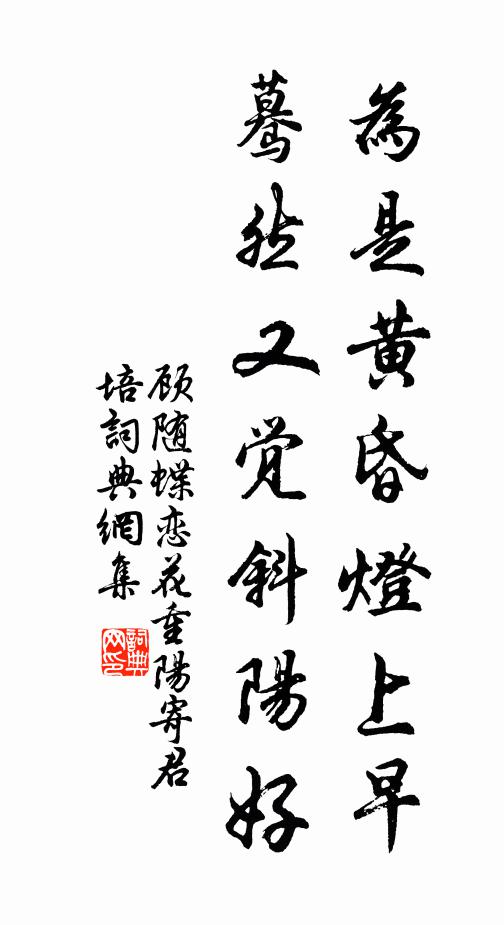 為是黃昏燈上早
驀然又觉斜陽好
顾随蝶恋花重陽寄君
培詞典網集
詞典
网印